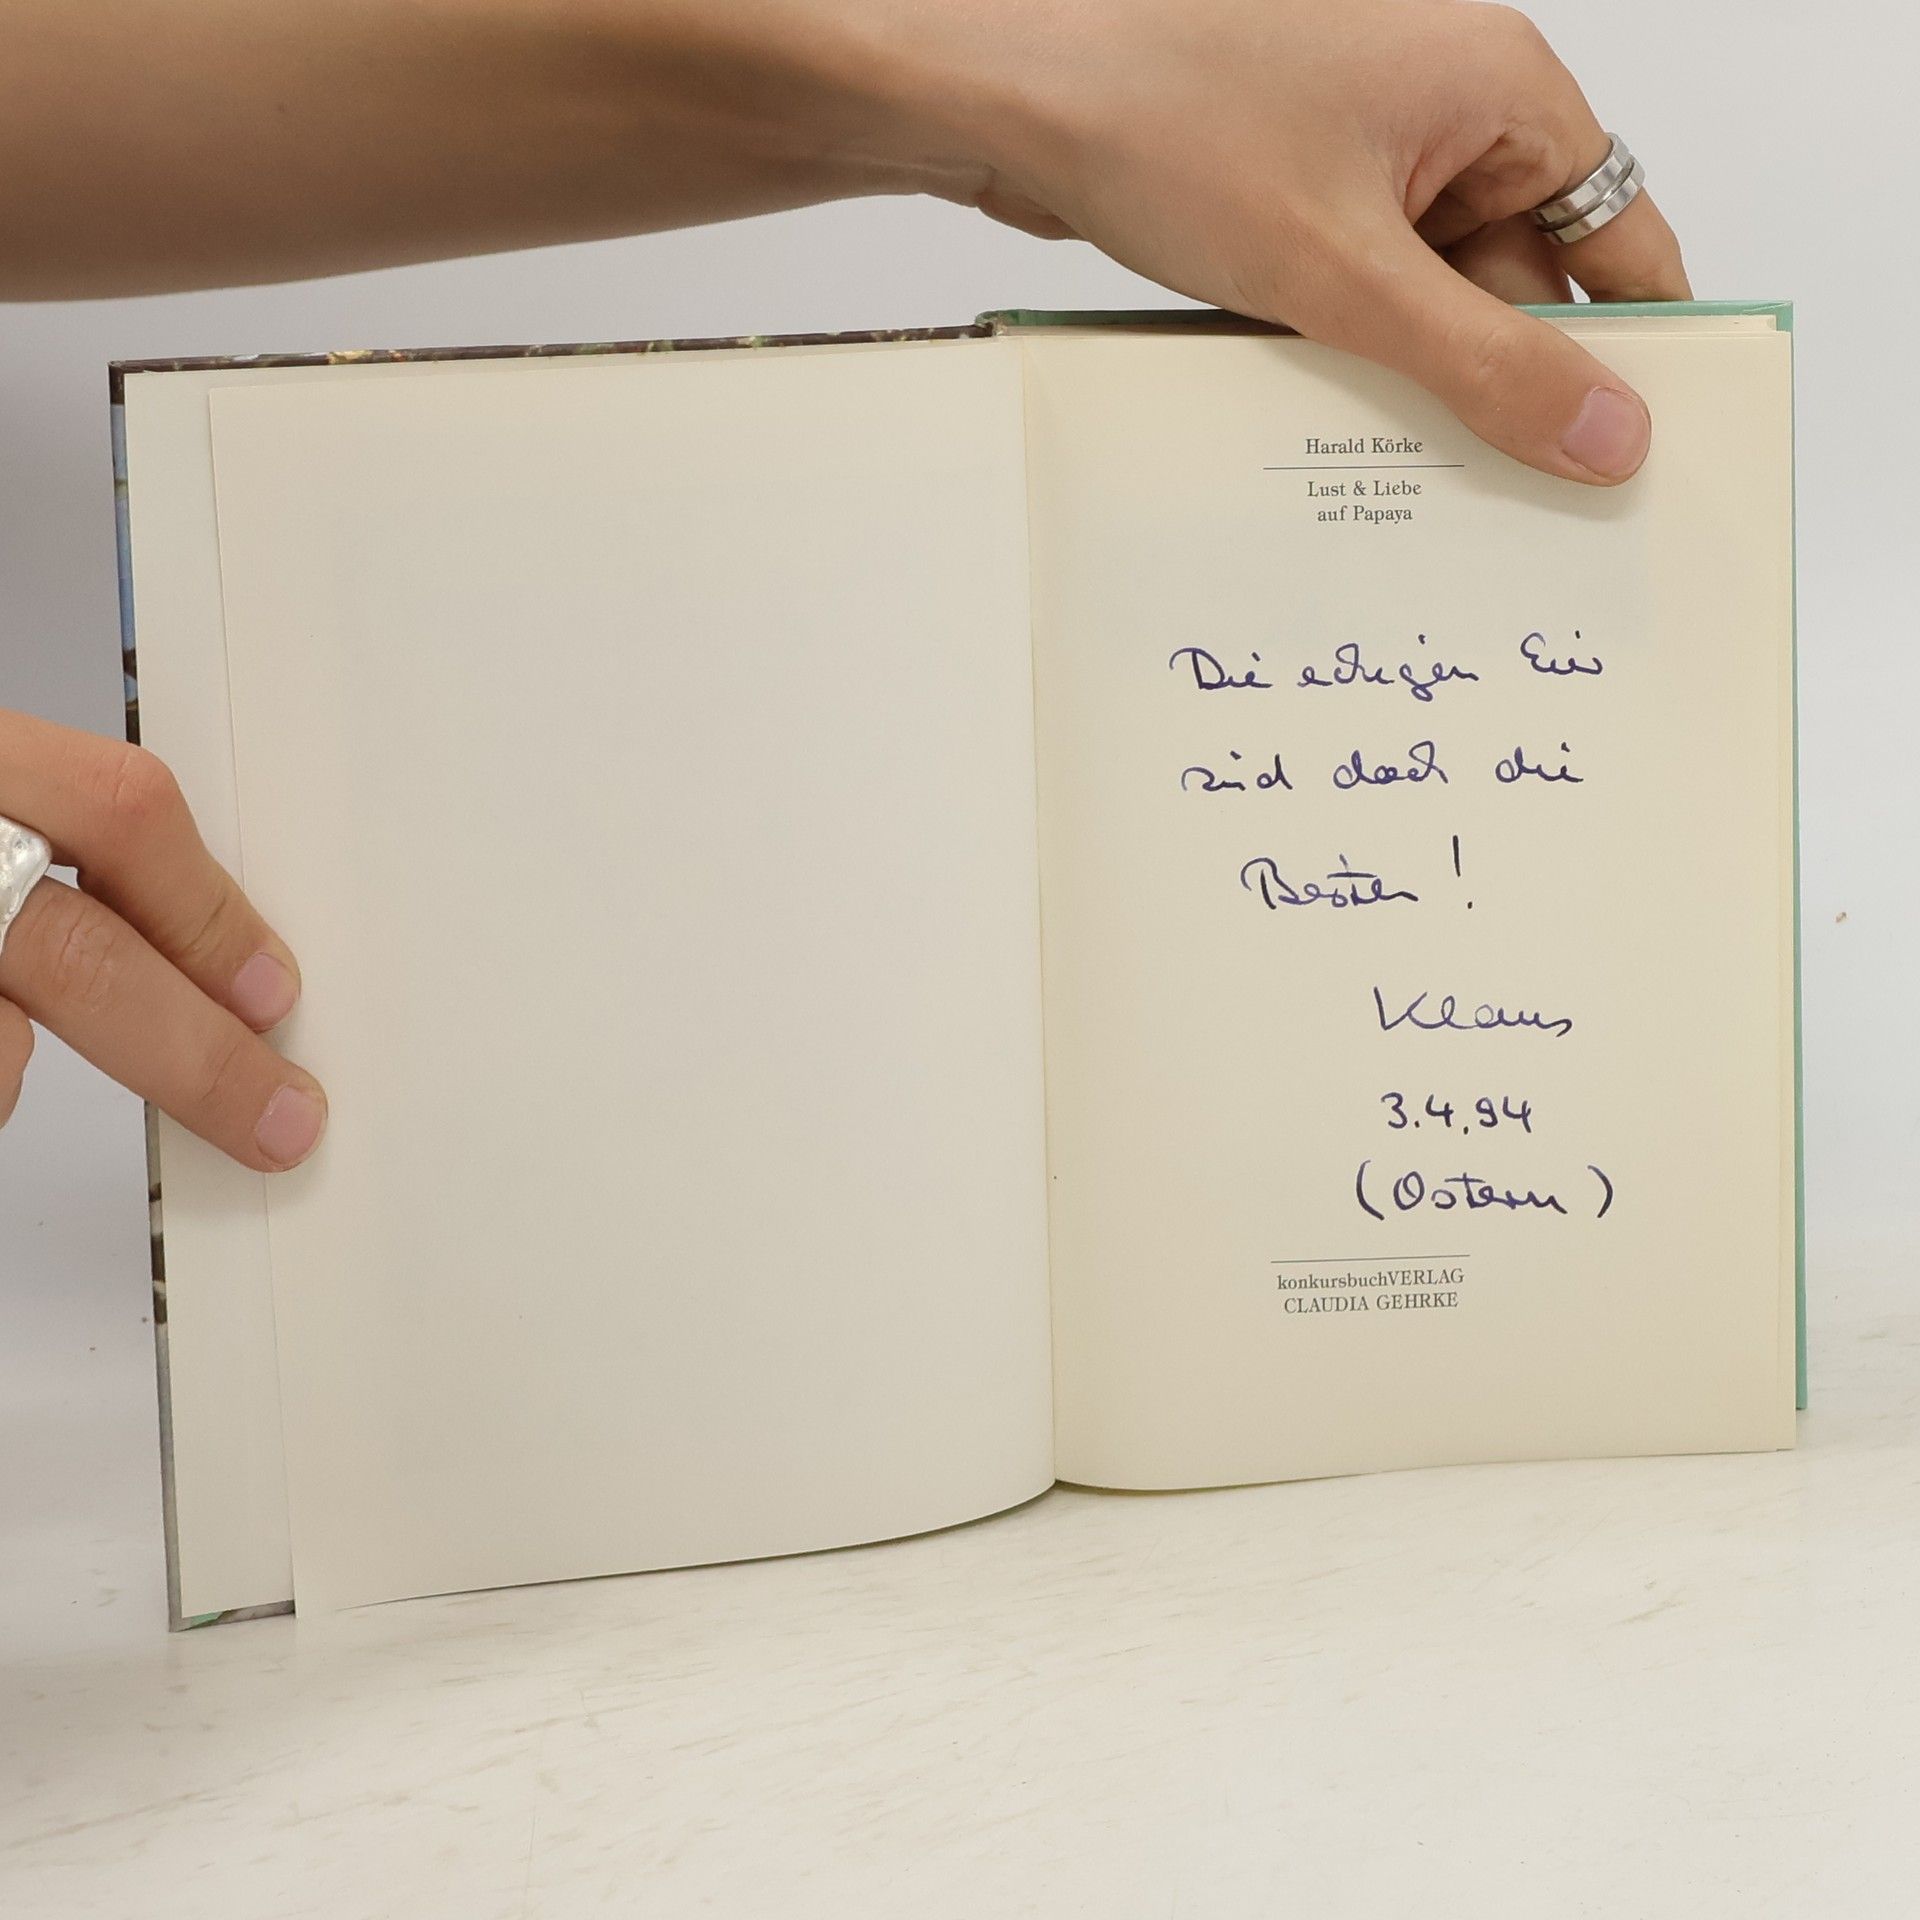 Harald Körke
Lust & Liebe
auf Papaya
Die eckigen Eier
sind doch die
Besten !
Klaus
3.4.94
(Ostern)
konkursbuchVERLAG
CLAUDIA GEHRKE